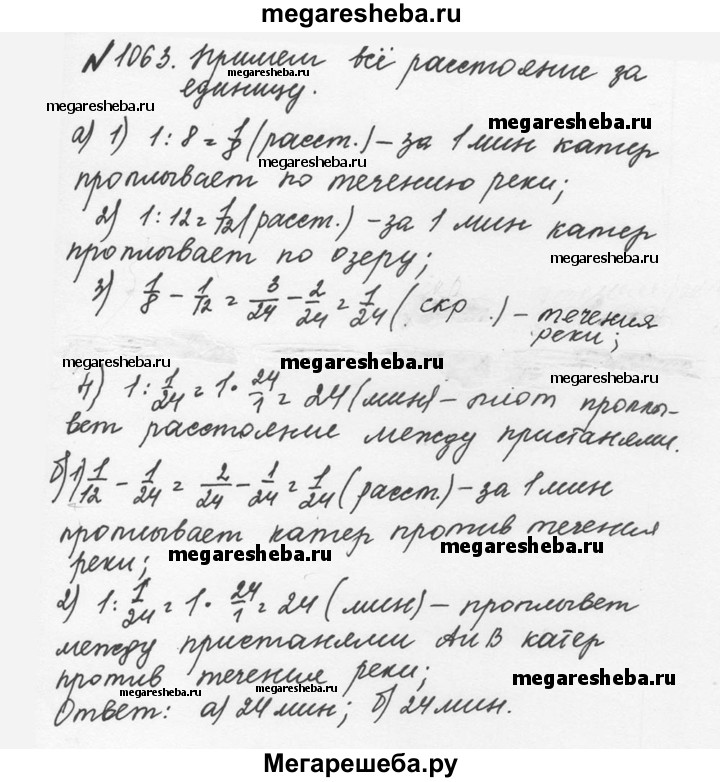 megaresheba.ru
№ 1063. Примем всё расстояние за
megaresheba.ru
единицу.
megaresheba.ru
megaresheba.ru
а) 1) 1 : 8 = 1/8 (расст.) – за 1 мин катер
megaresheba.ru
проплывает по течению реки;
megaresheba.ru
2) 1 : 12 = 1/12 (расст.) – за 1 мин катер
megaresheba.ru
проплывает по озеру;
3) 1/8 – 1/12 = 3/24 – 2/24 = 1/24 (скр.) – течения
реки;
megaresheba.ru
megaresheba.ru
megaresheba.ru
4) 1 : 1/24 = 1 · 24/1 = 24 (мин) – плот проплы-
вет расстояние между пристанями.
б) 1) 1/12 – 1/24 = 2/24 – 1/24 = 1/24 (расст.) – за 1 мин
проплывает катер против течения
megaresheba.ru
реки;
megaresheba.ru
2) 1 : 1/24 = 1 · 24/1 = 24 (мин) – проплывет
между пристанями А и В катер
против течения реки;
megaresheba.ru
megaresheba.ru
megaresheba.ru
Ответ: а) 24 мин; б) 24 мин.
Мегарешеба.ру